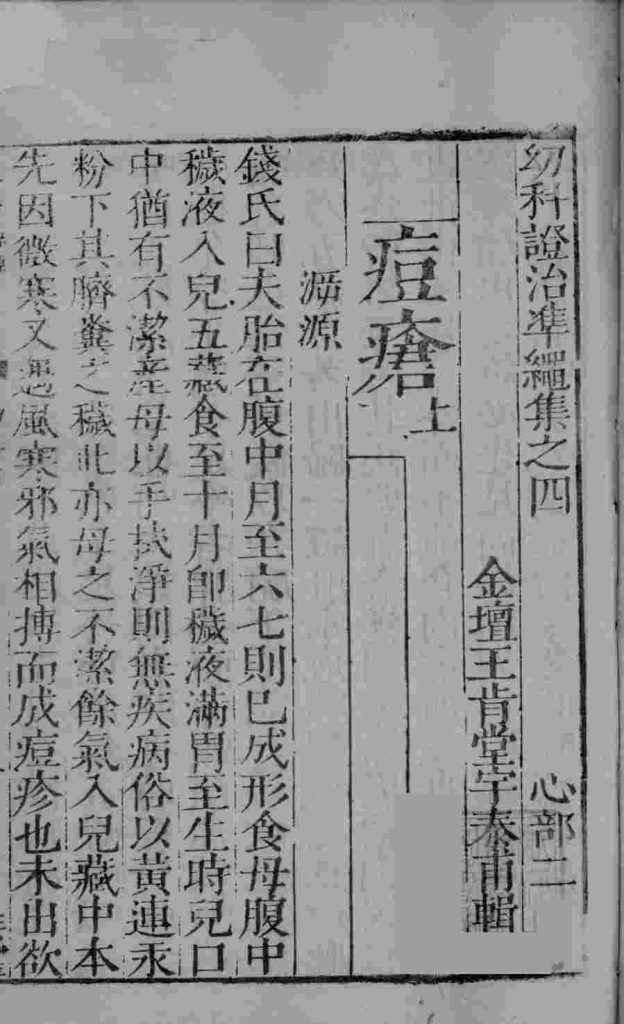 幼科證治準繩集之四 心部二
金壇王肯堂宇泰甫輯
痘瘡上
泝源
錢氏曰夫胎在腹中月至六七則已成形食母腹中
穢液入兒五藏食至十月即穢液滿胃至生時兒口
中猶有不潔產母以手拭淨則無疾病俗以黃連汞
粉下其臍糞之穢此亦母之不潔餘氣入兒藏中本
先因微寒又遇風寒邪氣相搏而成痘疹也未出欲